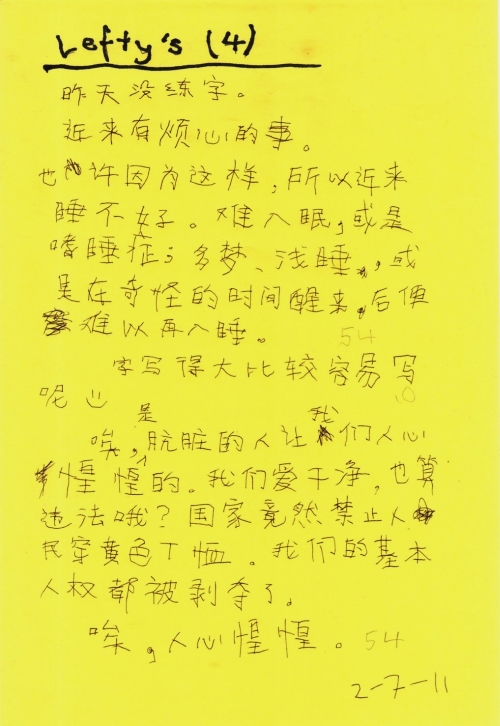 Lefty's (4)
昨天没练字。
近来有烦心的事。
也许因为这样，所以近来
睡不好。难入眠，或是
嗜睡症；多梦、浅睡，或
是在奇怪的时间醒来，后便
难以再入睡。 54
字写得大比较容易写
呢
是 我
唉，肮脏的人让们人心
惶惶的。我们爱干净，也算
违法哦？国家竟然禁止人
民穿黄色T恤。我们的基本
人权都被剥夺了。
唉，人心惶惶。 54
2-7-11